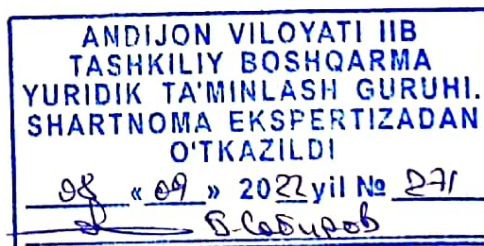 ANDIJON VILOYATI IIB
TASHKILIY BOSHQARMA
YURIDIK TA'MINLASH GURUHI.
SHARTNOMA EKSPERTIZADAN
O'TKAZILDI
08 « 09 » 2022 yil № 271
Б.Сабиров